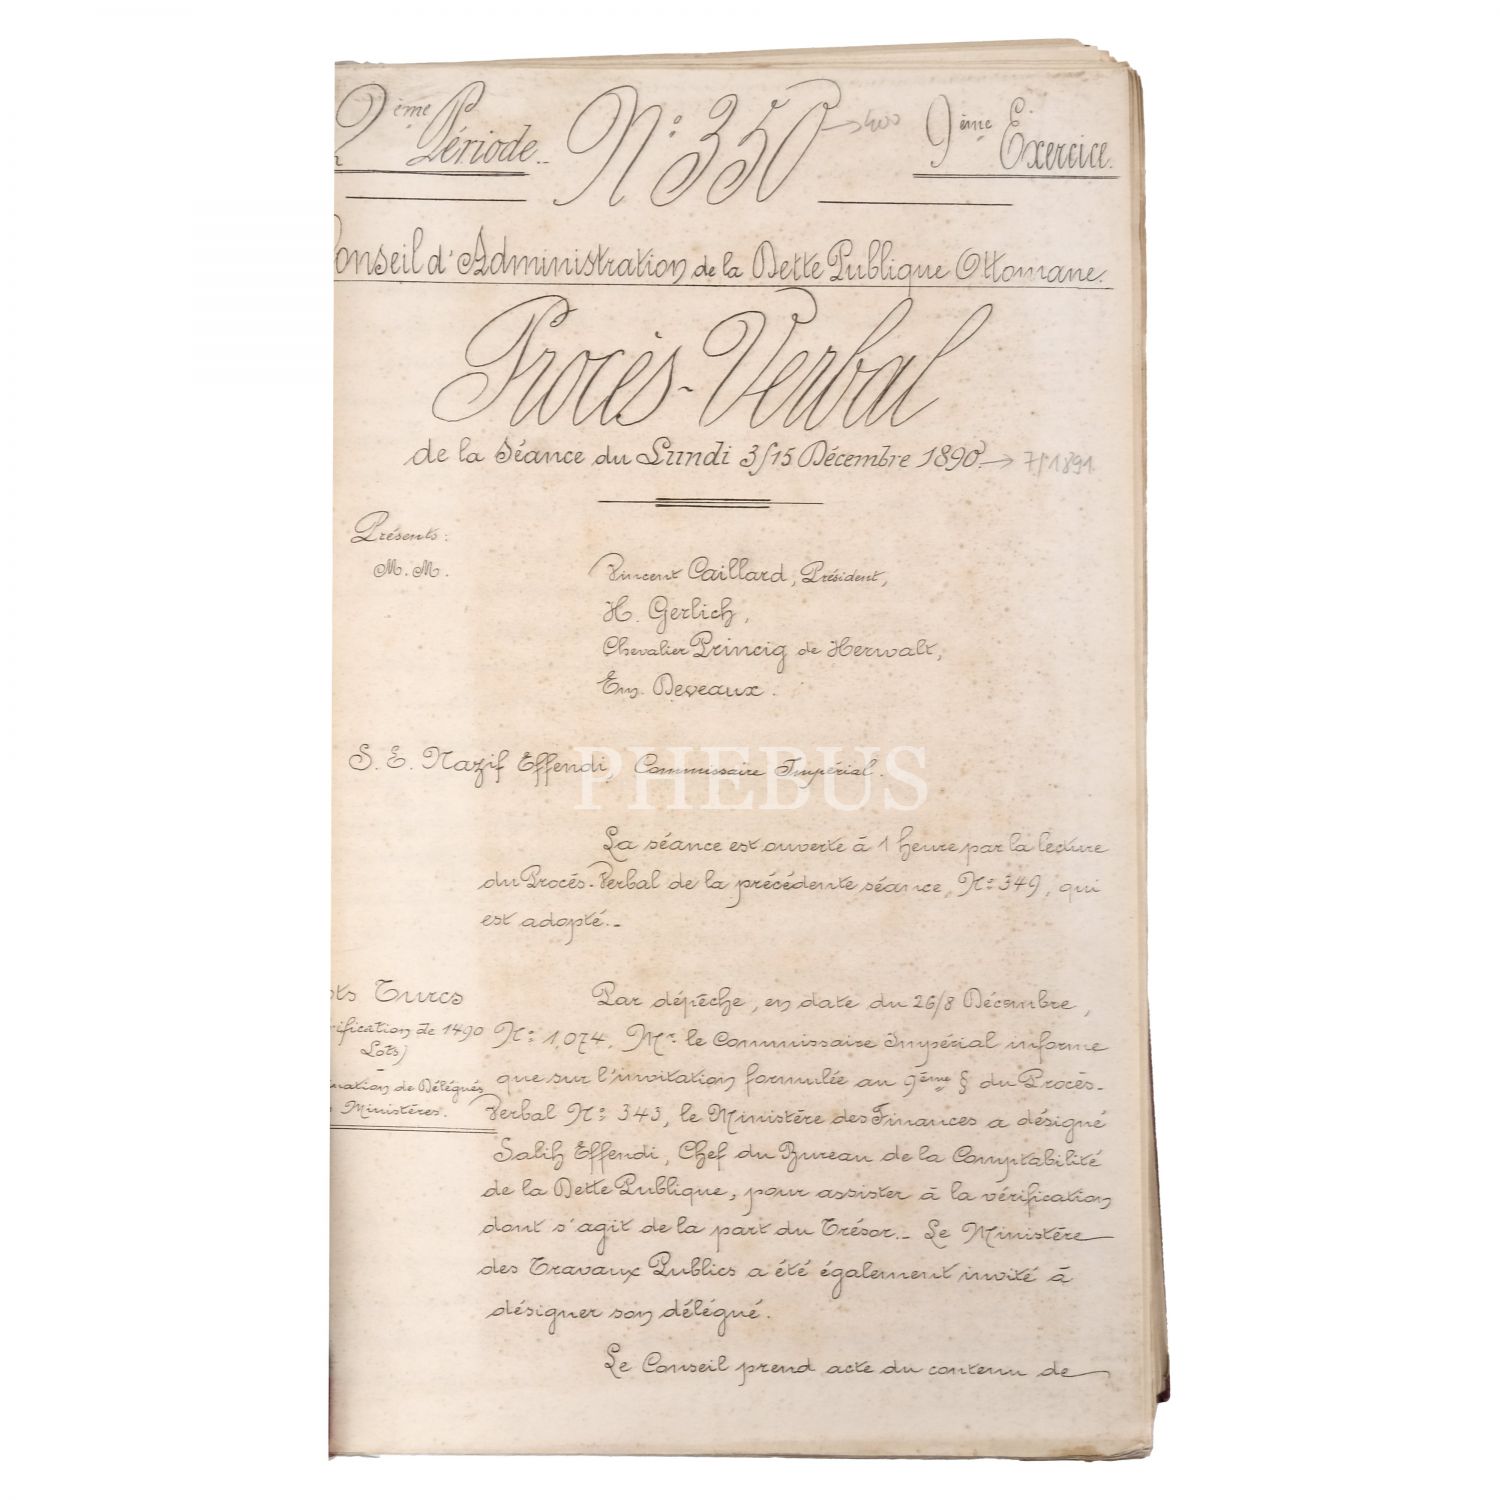 2ème Période.. N° 350 → 400 9ème Exercice.
Conseil d'Administration de la Dette Publique Ottomane.
Procès-Verbal
de la Séance du Lundi 3/15 Décembre 1890. → 1891
Présents:
M.M. Vincent Caillard, Président,
H. Gerlich,
Chevalier Princig de Herwalt,
Em. Deveaux.
S. E. Nazif Effendi, Commissaire Impérial.
PHEBUS
La séance est ouverte à 1 heure par la lecture
du Procès-Verbal de la précédente séance, N° 349, qui
est adopté._
Turcs
ification de 1490
Lots)
nation de Délégués
Ministères.
Par dépêche, en date du 26/8 Décembre,
N° 1,074, Mr. le Commissaire Impérial informe
que sur l'invitation formulée au 9ème § du Procès-
Verbal N° 343, le Ministère des Finances a désigné
Salih Effendi, Chef du Bureau de la Comptabilité
de la Dette Publique, pour assister à la vérification
dont s'agit de la part du Trésor._ Le Ministère
des Travaux Publics a été également invité à
désigner son délégué.
Le Conseil prend acte du contenu de